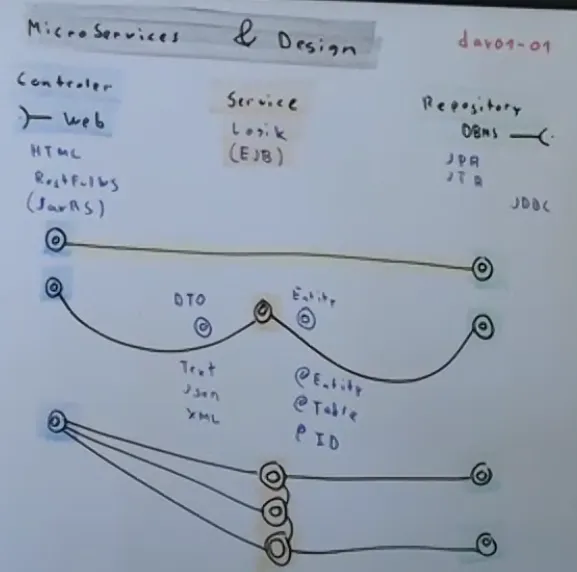 MicroServices & Design
dav01-01
Controler
Web
HTML
RestFullWS
(JaxRS)
Service
Logik
(EJB)
Repository
DBMS
JPA
JTA
JDBC
DTO
Entity
Text
Json
XML
@Entity
@Table
@ID